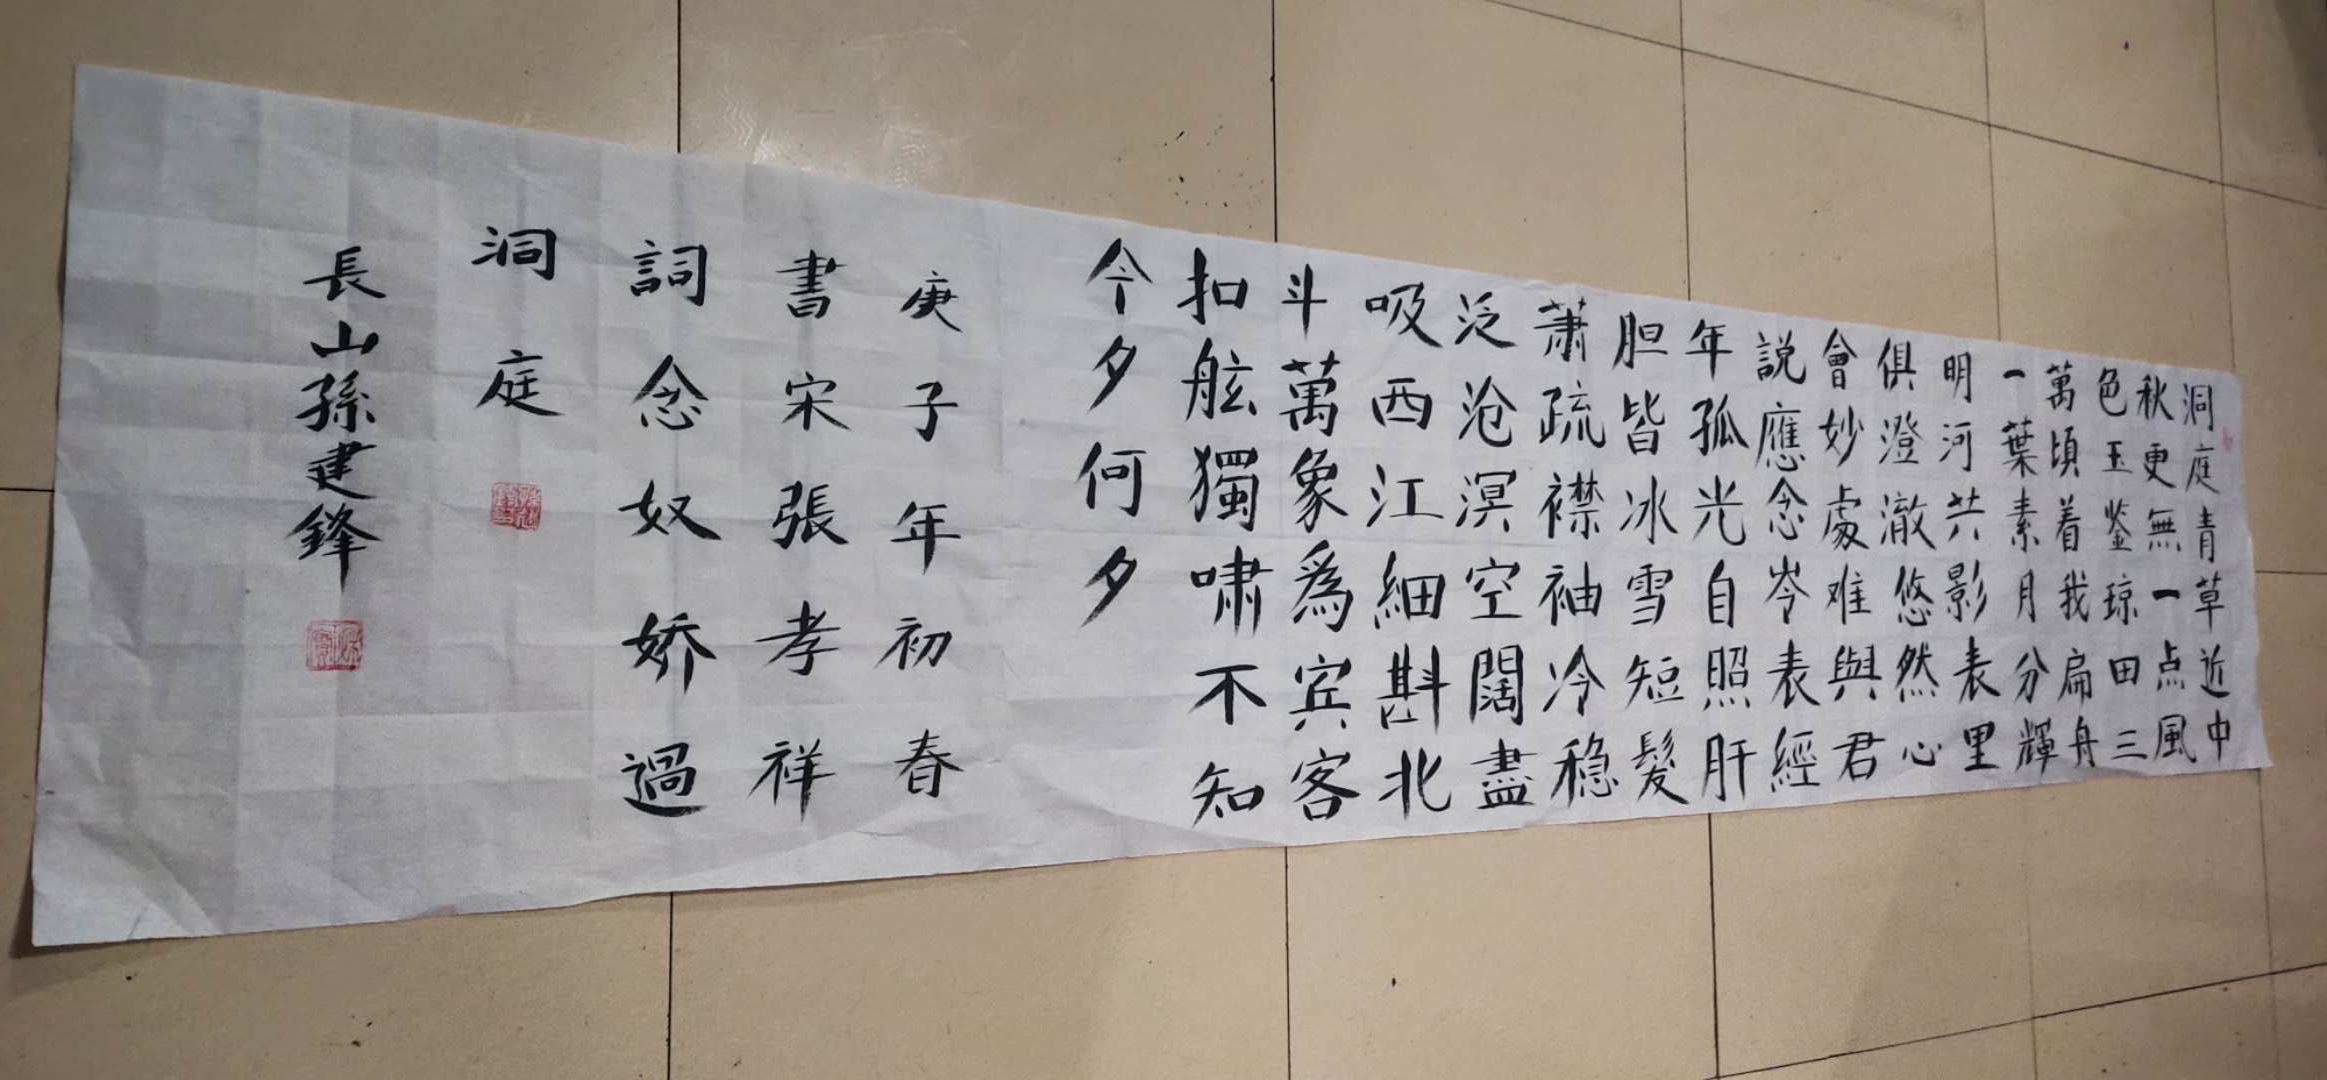 洞庭青草近中
秋更無一点風
色玉鉴琼田三
萬頃着我扁舟
一葉素月分輝
明河共影表里
俱澄澈悠然心
會妙處难與君
説應念岑表經
年孤光自照肝
胆皆冰雪短髮
蕭疏襟袖冷稳
泛沧溟空闊盡
吸西江細斟北
斗萬象爲宾客
扣舷獨啸不知
今夕何夕
庚子年初春
書宋張孝祥
詞念奴娇過
洞庭
長山孫建鋒